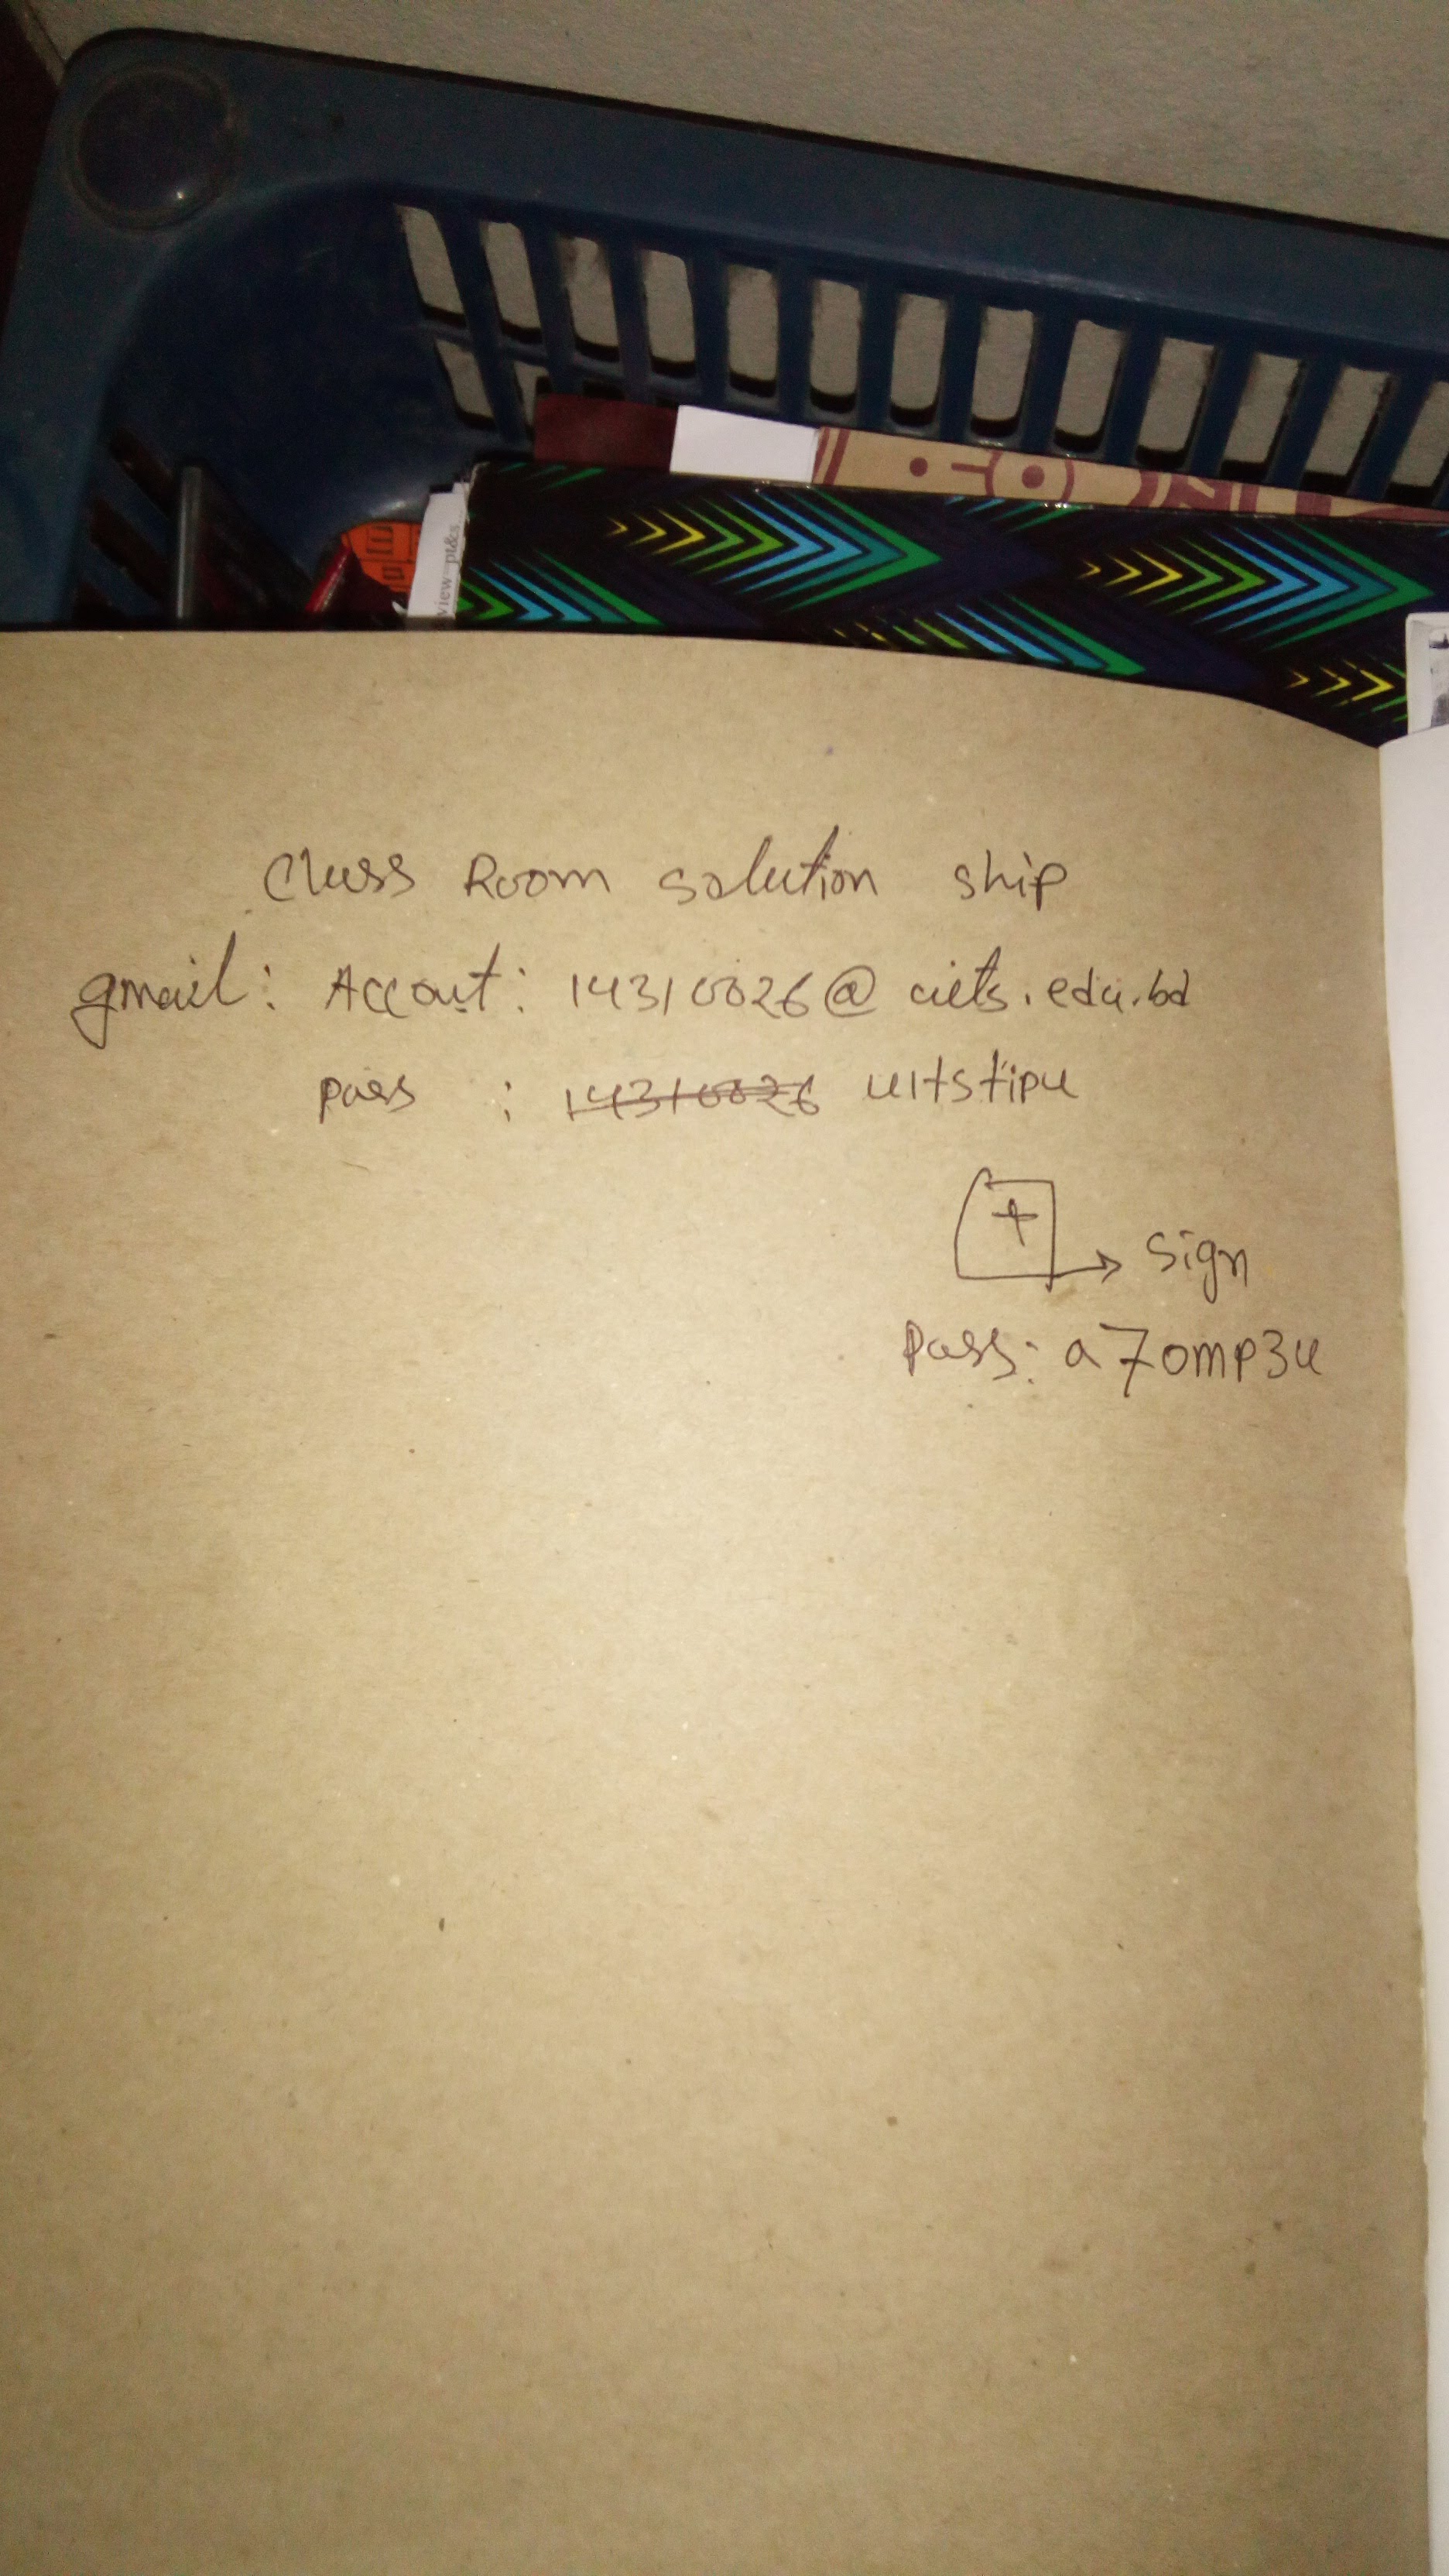 view pt&s
Class Room solution ship
gmail: Accout: 14310026@uits.edu.bd
pass : 14310026 uitstipu
+ → sign
Pass: a7omp3u